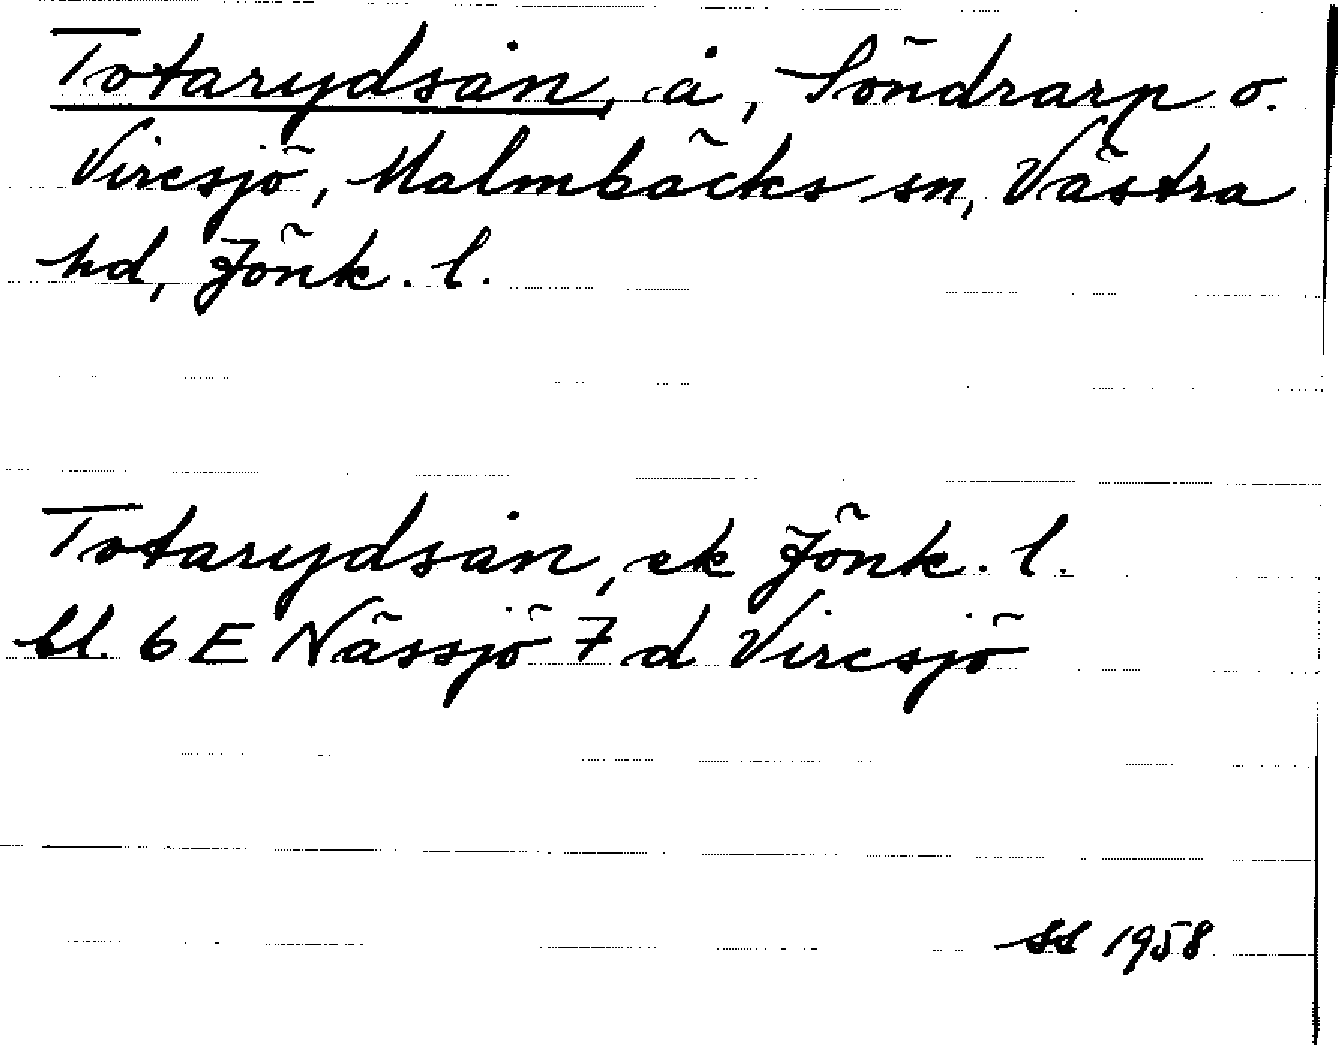 Totarydsån, å, Söndrarp o.
Vircsjö, Malmbäcks sn, Västra
hd, Jönk. l.
Totarydsån, ek Jönk. l.
bl. 6 E Nässjö 7 d Vircsjö
SS 1958